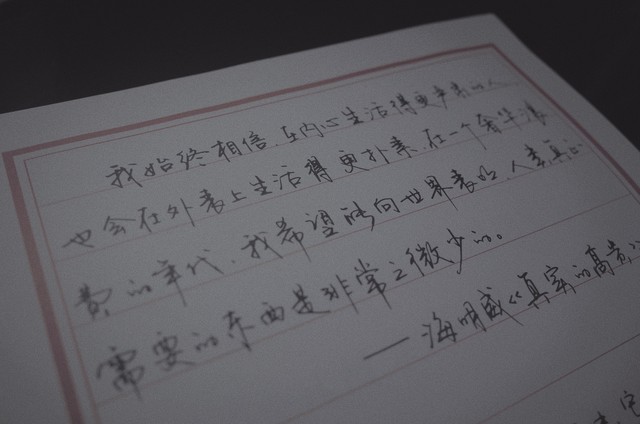 我始终相信，在内心生活得更严肃的人
也会在外表上生活得更朴素。在一个奢华浪
费的年代，我希望能向世界表明，人类真正
需要的东西是非常之微少的。
——海明威《真实的高贵》